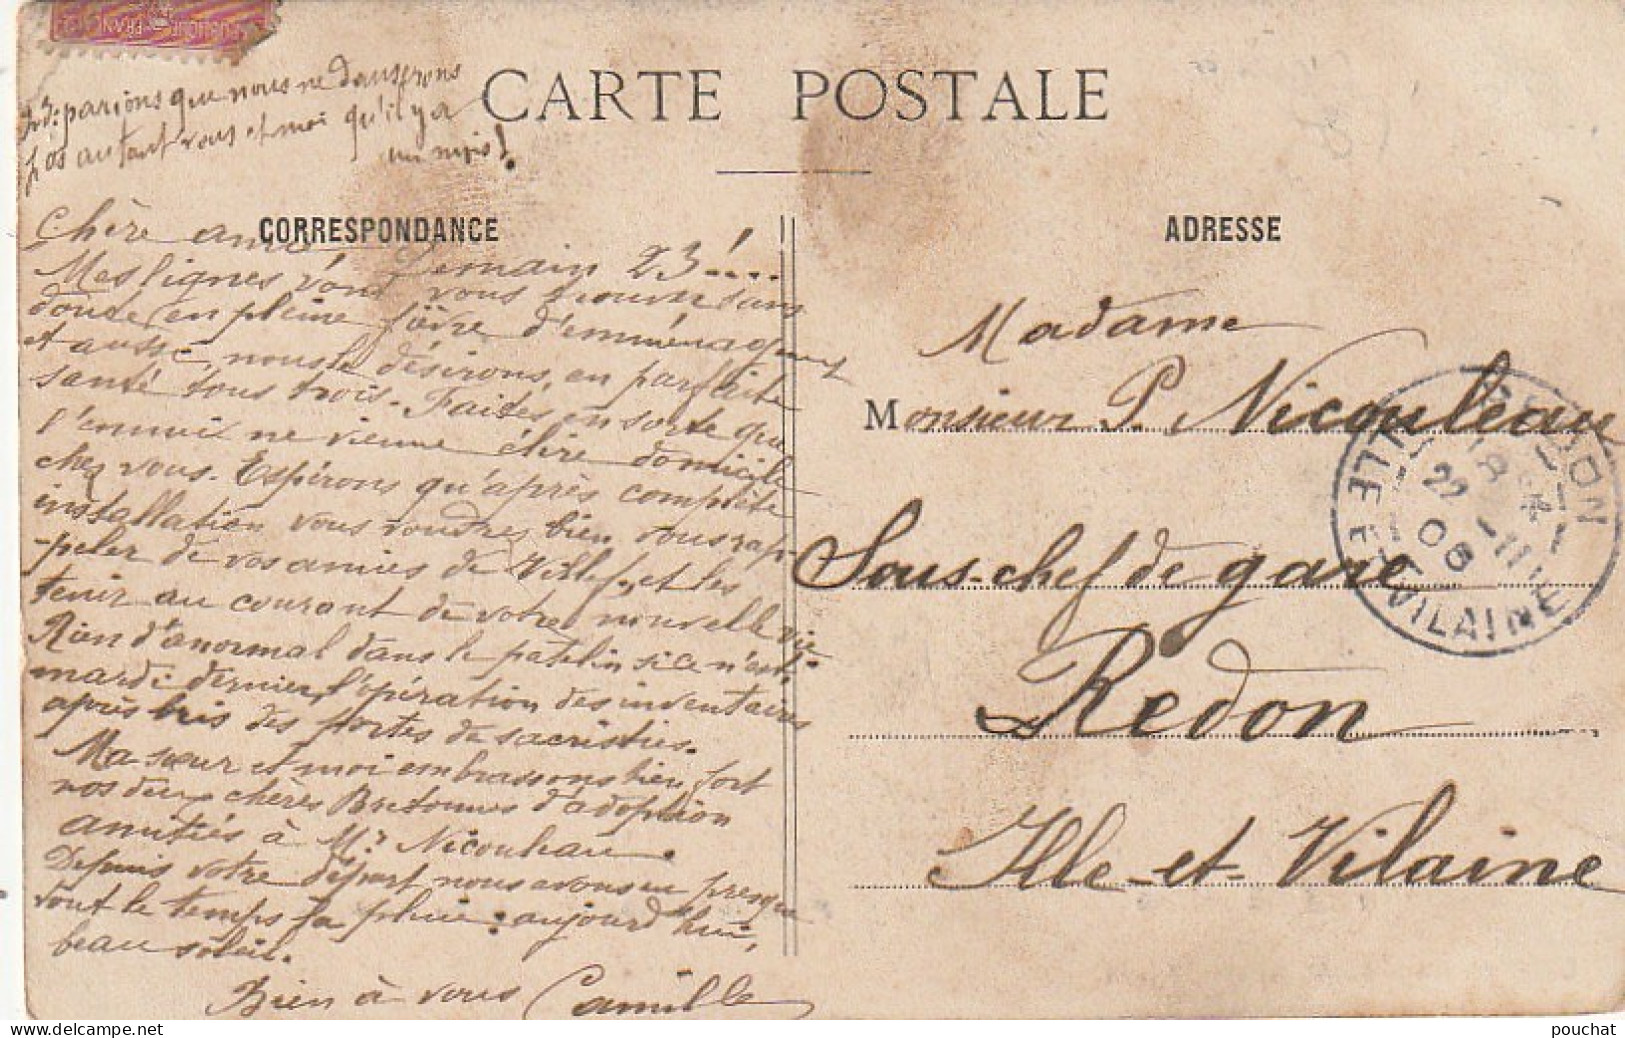 parions que nous ne danserons
pas autant vous et moi qu'il y a
un mois!
CARTE POSTALE
CORRESPONDANCE
ADRESSE
Chère amie Demain 23!....
Mes lignes vont vous trouver sans
doute, en pleine fièvre d'emménagement
et aussi, nous le désirons, en parfaite
santé tous trois. Faites en sorte que
l'ennui ne vienne élire domicile
chez vous. Espérons qu'après complète
installation vous voudrez bien vous rap-
-peler de vos amies de Villef. et les
tenir au courant de votre nouvelle vie.
Rien d'anormal dans le patelin si ce n'est,
mardi dernier, l'opération des inventaires
après bris des portes de sacristies.
Ma sœur et moi embrassons bien fort
nos deux chères Bretonnes d'adoption
amitiés à Mr Nicouleau.
Depuis votre départ nous avons eu presque
tout le temps la pluie: aujourd'hui,
beau soleil.
Bien à vous Camille
Madame
Monsieur P. Nicouleau
Sous-chef de gare
Redon
Ille-et-Vilaine
REDON
ILLE ET VILAINE
22
06
pouchat